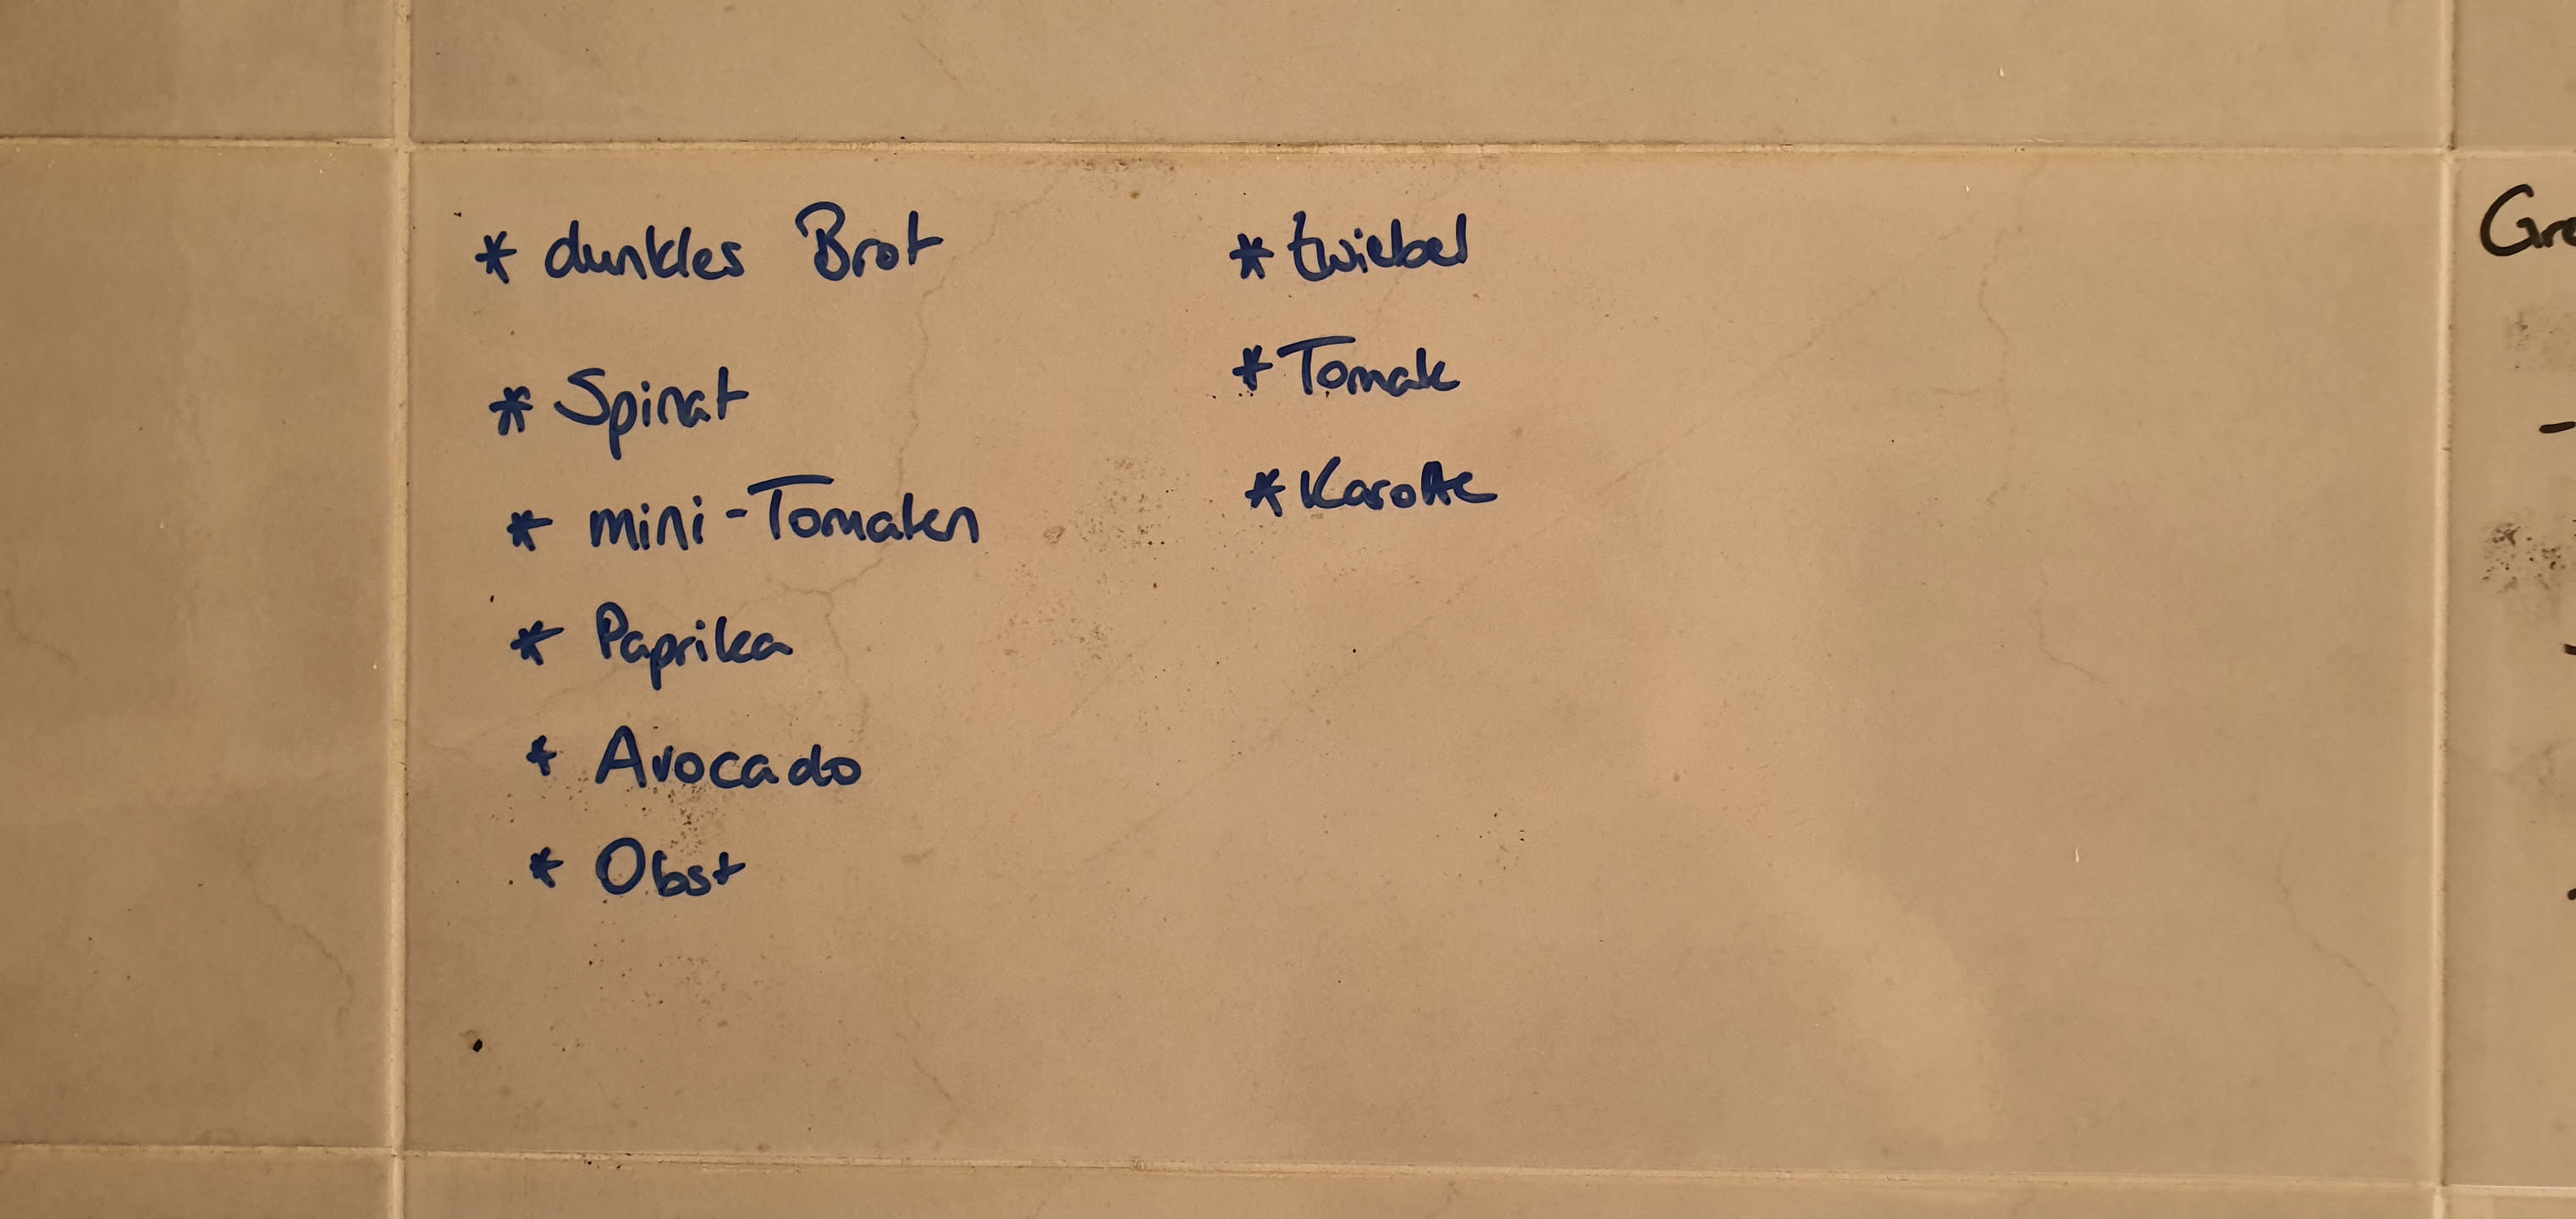 * dunkles Brot
* Spinat
* mini-Tomaten
* Paprika
* Avocado
* Obst
* Zwiebel
* Tomate
* Karotte